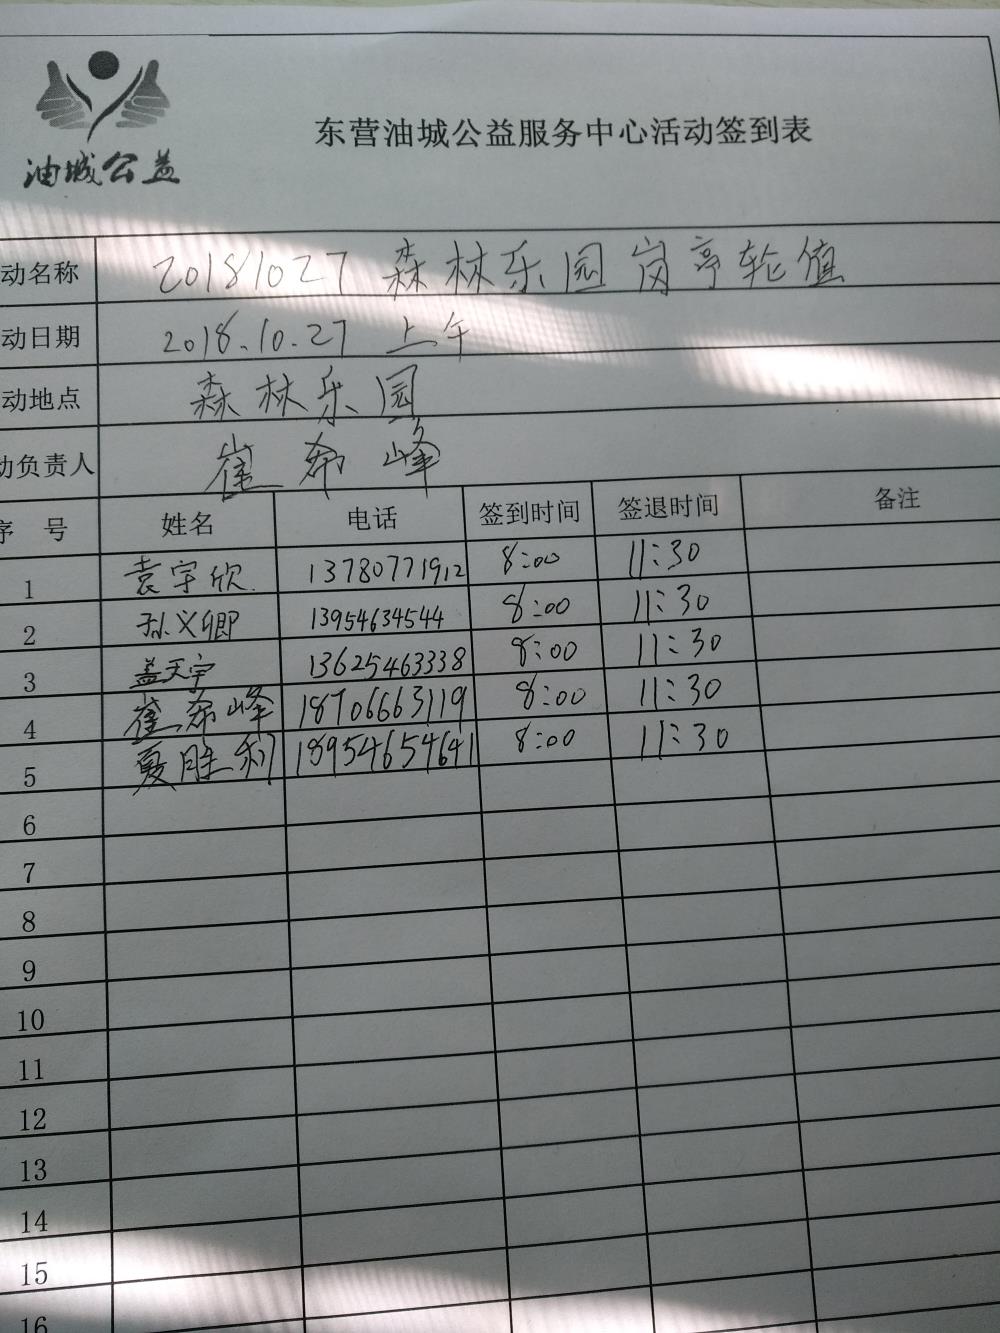 油城公益
东营油城公益服务中心活动签到表
动名称 20181027 森林乐园岗亭轮值
动日期 2018.10.27 上午
动地点 森林乐园
动负责人 崔希峰
序 号 姓名 电话 签到时间 签退时间 备注
1 袁宇欣 13780771912 8:00 11:30
2 孙义卿 13954634544 8:00 11:30
3 盖天宇 13625463338 8:00 11:30
4 崔希峰 18706663119 8:00 11:30
5 夏胜利 18954654641 8:00 11:30
6
7
8
9
10
11
12
13
14
15
16